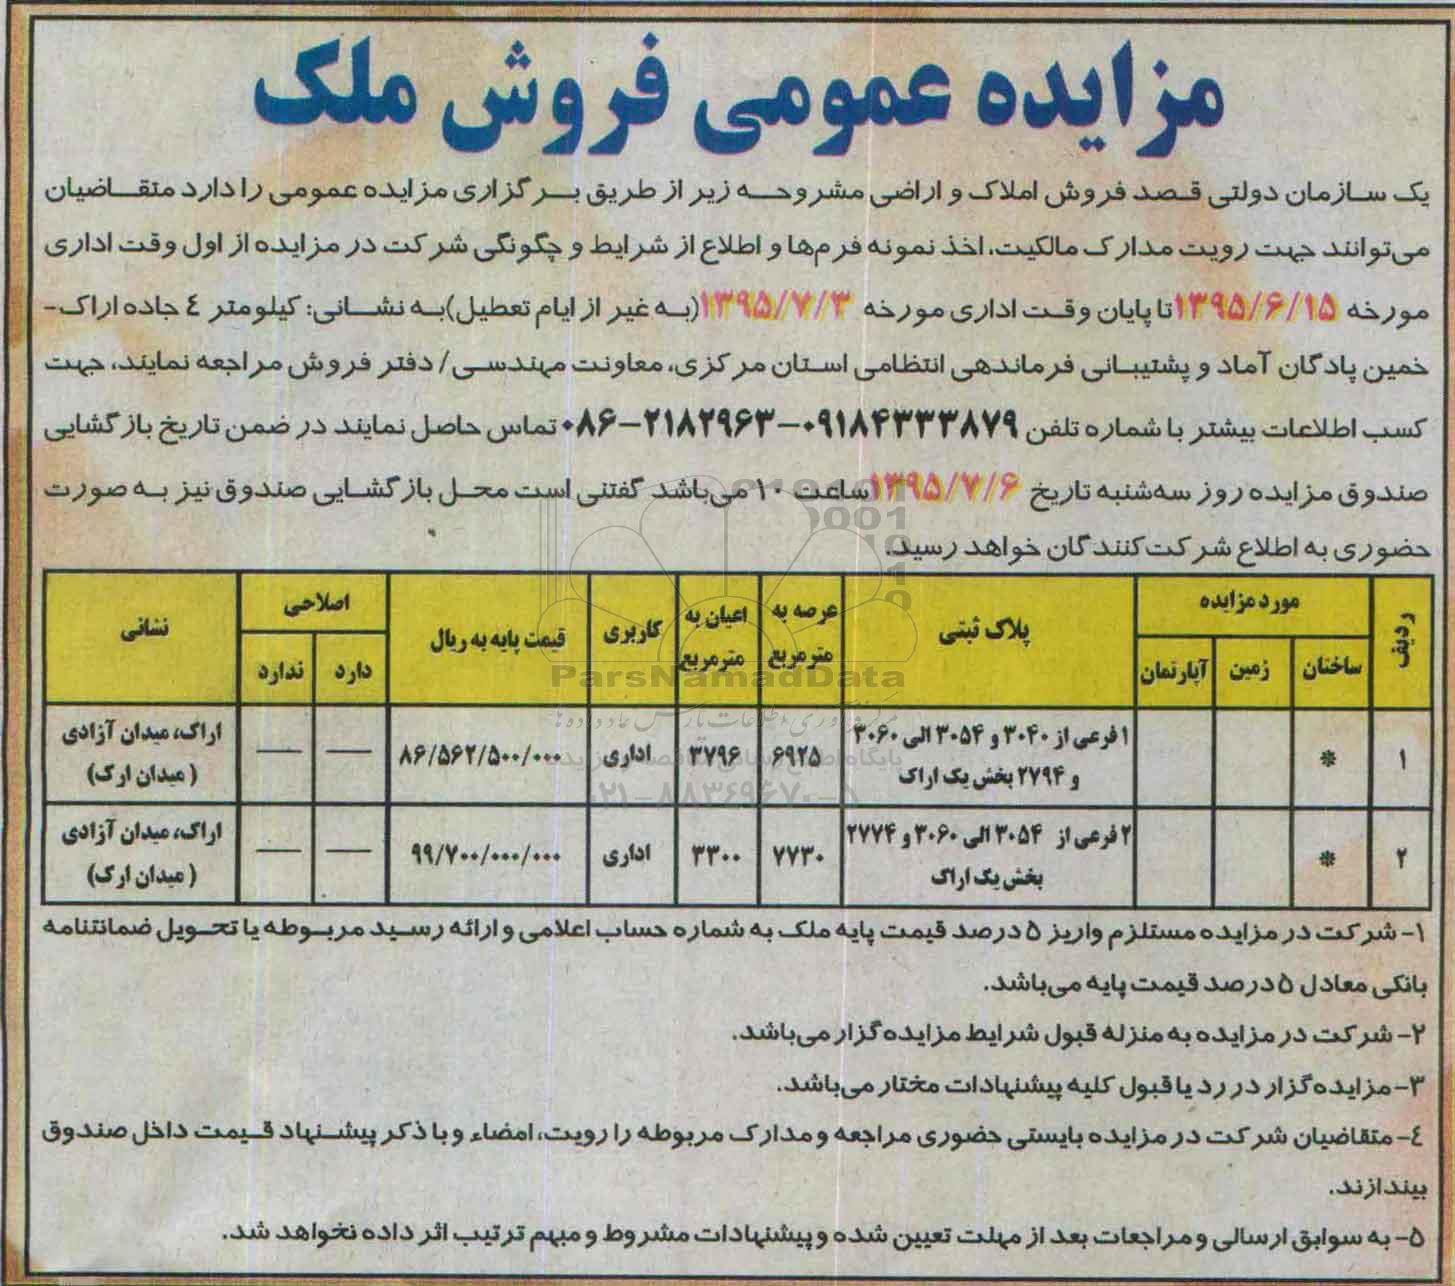 مزایده عمومی فروش ملک
یک سازمان دولتی قصد فروش املاک و اراضی مشروحه زیر از طریق برگزاری مزایده عمومی را دارد متقاضیان
می‌توانند جهت رویت مدارک مالکیت، اخذ نمونه فرم‌ها و اطلاع از شرایط و چگونگی شرکت در مزایده از اول وقت اداری
مورخه ۱۳۹۵/۶/۱۵ تا پایان وقت اداری مورخه ۱۳۹۵/۷/۳ (به غیر از ایام تعطیل) به نشانی: کیلومتر ٤ جاده اراک-
خمین پادگان آماد و پشتیبانی فرماندهی انتظامی استان مرکزی، معاونت مهندسی/ دفتر فروش مراجعه نمایند، جهت
کسب اطلاعات بیشتر با شماره تلفن ۰۹۱۸۴۳۳۳۸۷۹-۲۱۸۲۹۶۳-۰۸۶ تماس حاصل نمایند در ضمن تاریخ بازگشایی
صندوق مزایده روز سه‌شنبه تاریخ ۱۳۹۵/۷/۶ ساعت ۱۰ می‌باشد گفتنی است محل بازگشایی صندوق نیز به صورت
حضوری به اطلاع شرکت‌کنندگان خواهد رسید.
ردیف مورد مزایده پلاک ثبتی عرصه به مترمربع اعیان به مترمربع کاربری قیمت پایه به ریال اصلاحی نشانی
ساختان زمین آپارتمان دارد ندارد
۱ * ۱ فرعی از ۳۰۴۰ و ۳۰۵۴ الی ۳۰۶۰ ۶۹۲۵ ۳۷۹۶ اداری ۸۶/۵۶۲/۵۰۰/۰۰۰ — — اراک، میدان آزادی
و ۲۷۹۴ بخش یک اراک (میدان ارک)
۲ * ۲ فرعی از ۳۰۵۴ الی ۳۰۶۰ و ۲۷۷۴ ۷۷۳۰ ۳۳۰۰ اداری ۹۹/۷۰۰/۰۰۰/۰۰۰ — — اراک، میدان آزادی
بخش یک اراک (میدان ارک)
ParsNamadData
۰۲۱-۸۸۳۴۹۶۷۰-۸
۱- شرکت در مزایده مستلزم واریز ۵ درصد قیمت پایه ملک به شماره حساب اعلامی و ارائه رسید مربوطه یا تحویل ضمانتنامه
بانکی معادل ۵ درصد قیمت پایه می‌باشد.
۲- شرکت در مزایده به منزله قبول شرایط مزایده گزار می‌باشد.
۳- مزایده‌گزار در رد یا قبول کلیه پیشنهادات مختار می‌باشد.
٤- متقاضیان شرکت در مزایده بایستی حضوری مراجعه و مدارک مربوطه را رویت، امضاء و با ذکر پیشنهاد قیمت داخل صندوق
بیندازند.
۵- به سوابق ارسالی و مراجعات بعد از مهلت تعیین شده و پیشنهادات مشروط و مبهم ترتیب اثر داده نخواهد شد.